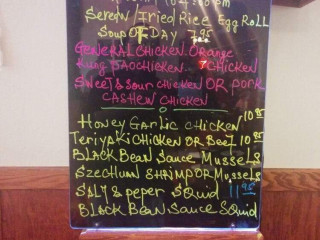 Seredw/Fried Rice Egg Roll
Soup OF DAY 7.95
GENERAL CHICKEN Orange
Kung PAO CHICKEN CHICKEN
Sweet & Sour CHICKEN OR PORK
CASHEW CHICKEN
Honey Garlic CHICKEN 10.95
Teriyaki CHICKEN OR Beef 10.95
BLACK Bean Sauce Mussels
Szechuan SHRIMP OR Mussels
SALT & Peper Squid 11.95
BLACK Bean Sauce Squid